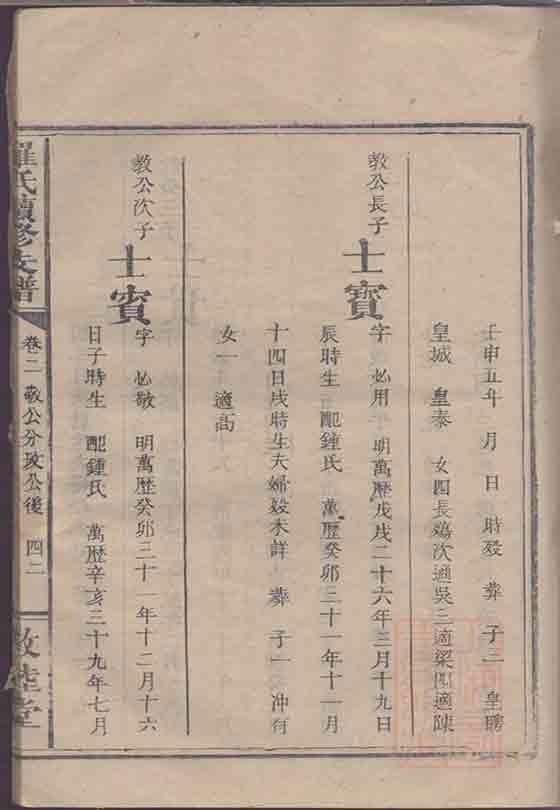 壬申五年 月 日 時歿 葬 子三 皇曉
皇城 皇泰 女四長鷄次適吳三適梁四適陳
教公長子
士寳
字 必用 明萬歷戊戌二十六年三月十九日
辰時生 配鍾氏 萬歷癸卯三十一年十一月
十四日戌時生夫婦歿未詳 葬 子一 冲有
女一 適高
教公次子
士賓
字 必敬 明萬歷癸卯三十一年十二月十六
日子時生 配鍾氏 萬歷辛亥三十九年七月
羅氏續修支譜
卷二 敬公分政公後 四二
敦睦堂